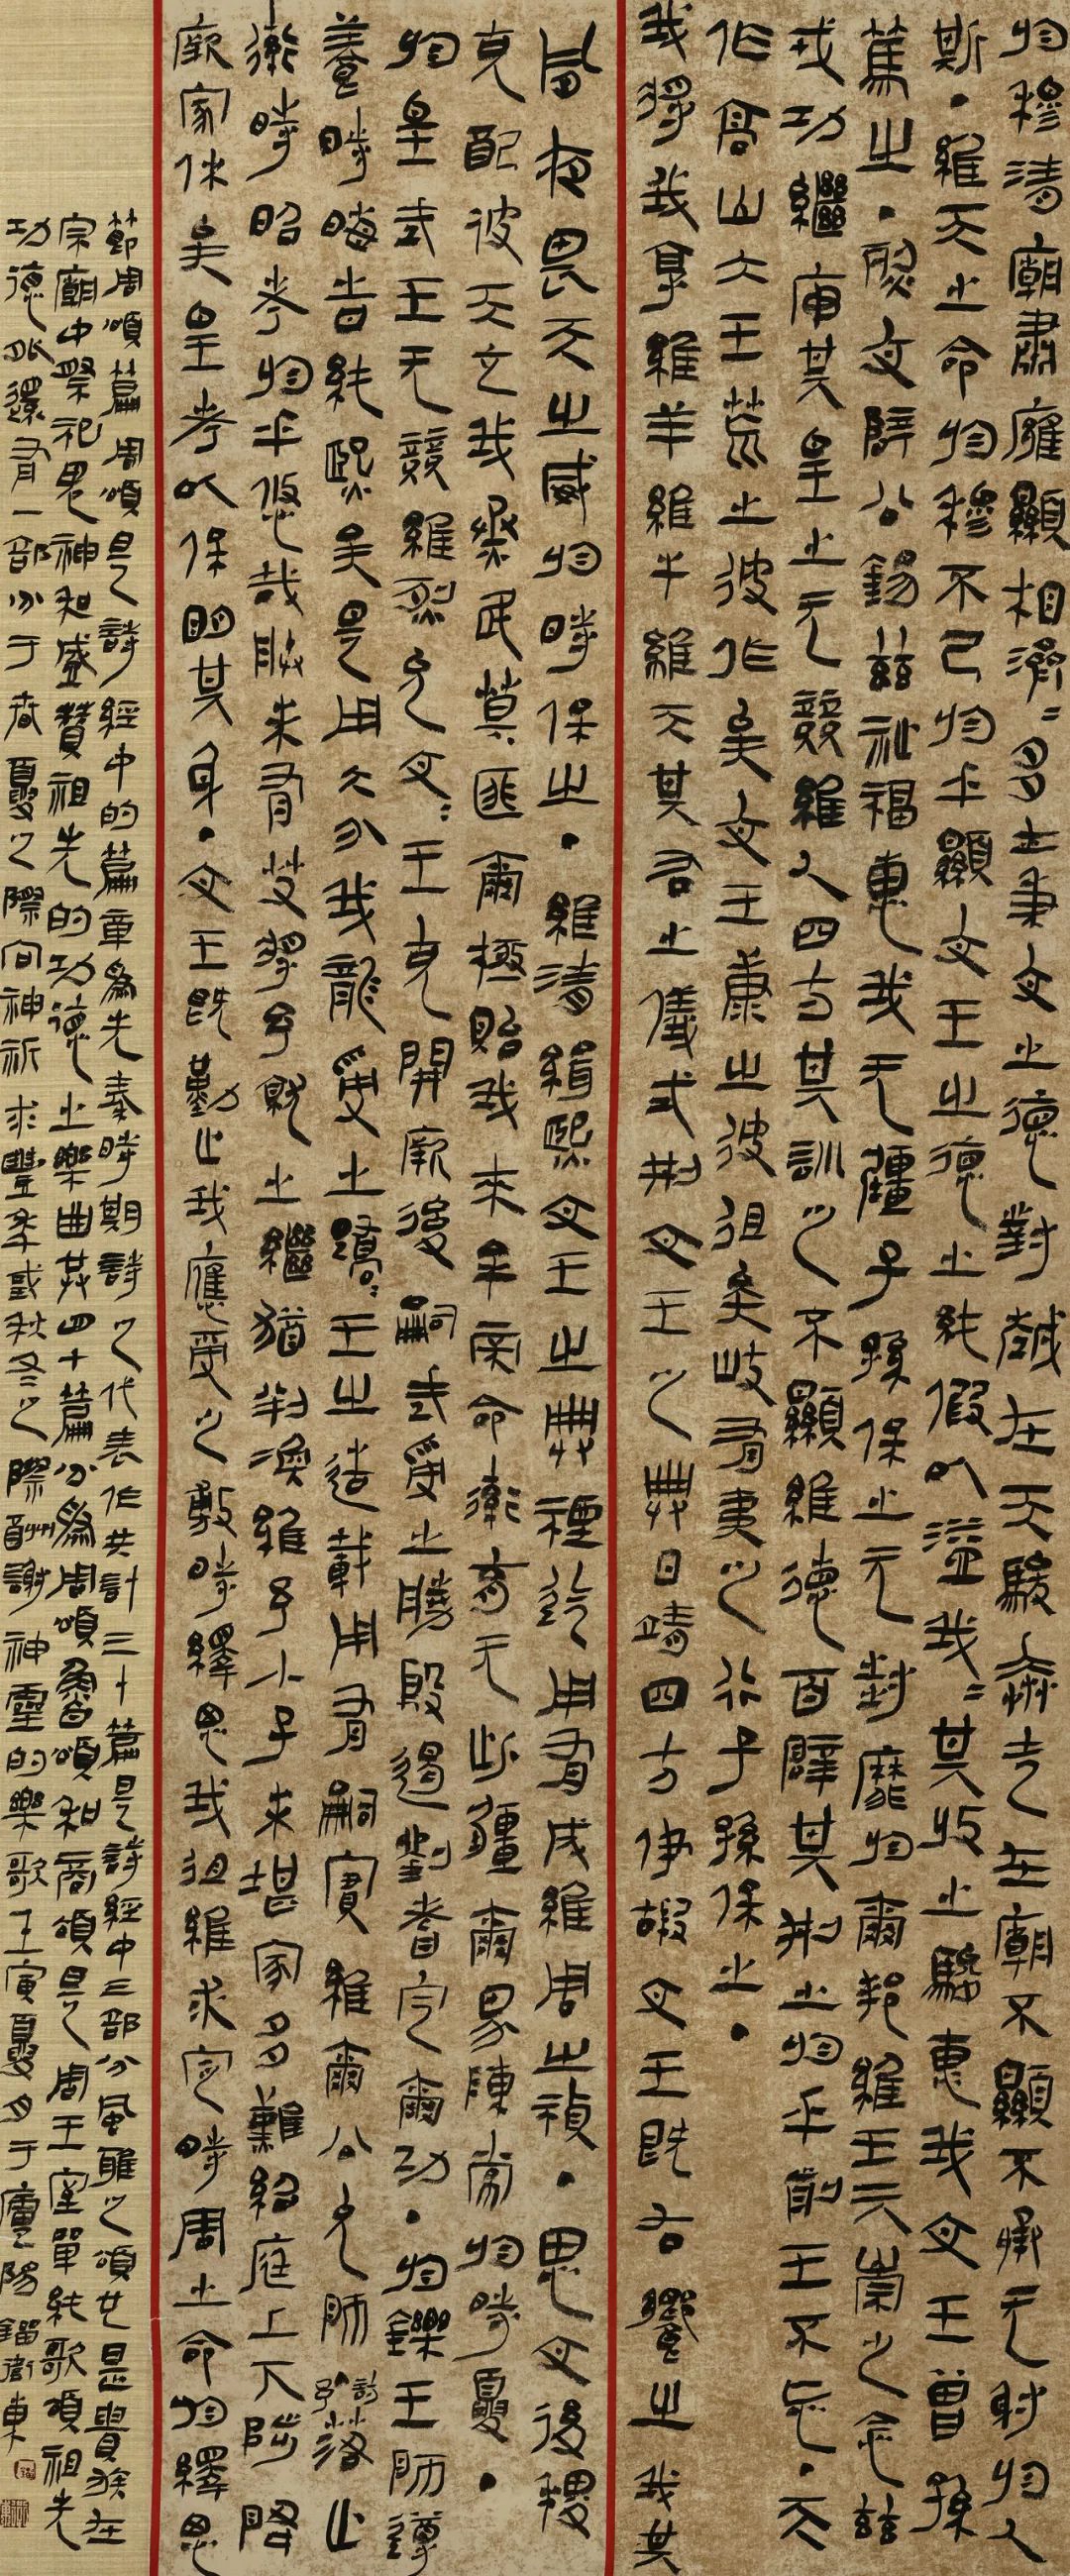 於穆清廟肅雝顯相濟〻多士秉文之德對越在天駿奔走在廟不顯不承无射於人
斯·維天之命於穆不已於乎不顯文王之德之純假以溢我〻其收之駿惠我文王曾孫
篤之·烈文辟公錫茲祉福惠我无疆子孫保之无封靡於爾邦維王其崇之念茲
戎功繼序其皇之无競維人四方其訓之不顯維德百辟其刑之於乎前王不忘·天
作高山大王荒之彼作矣文王康之彼徂矣岐有夷之行子孫保之·
我將我享維羊維牛維天其右之儀式刑文王之典日靖四方伊嘏文王既右饗之我其
夙夜畏天之威於時保之·維清緝熙文王之典禋迄用有成維周之禎·思文后稷
克配彼天立我烝民莫匪爾極貽我來牟帝命率育无此疆爾界陳常於時夏·
於皇武王无競維烈允文〻王克開厥後嗣武受之勝殷遏劉耆定爾功·於鑠王師遵
養時晦昔純熙矣是用大介我龍受之蹻〻王之造載用有嗣實維爾公允師訪予落止
率時昭考於乎悠哉朕未有艾將予就之繼猶判渙維予小子未堪家多難紹庭上下陟降
厥家休矣皇考以保明其身·文王既勤止我應受之敷時繹思我徂維求定時周之命於繹思
節周頌篇周頌是詩經中的篇章爲先秦時期詩之代表作共計三十一篇是詩經中三部分風雅之頌也是貴族在
宗廟中祭祀鬼神和盛贊祖先的功德之樂曲共四十篇分爲周頌魯頌和商頌是周王室單純歌頌祖先
功德此還有一部分于春夏之際向神祈求豐年或秋冬之際酬謝神靈的樂歌王寅夏月于廬陽衛東